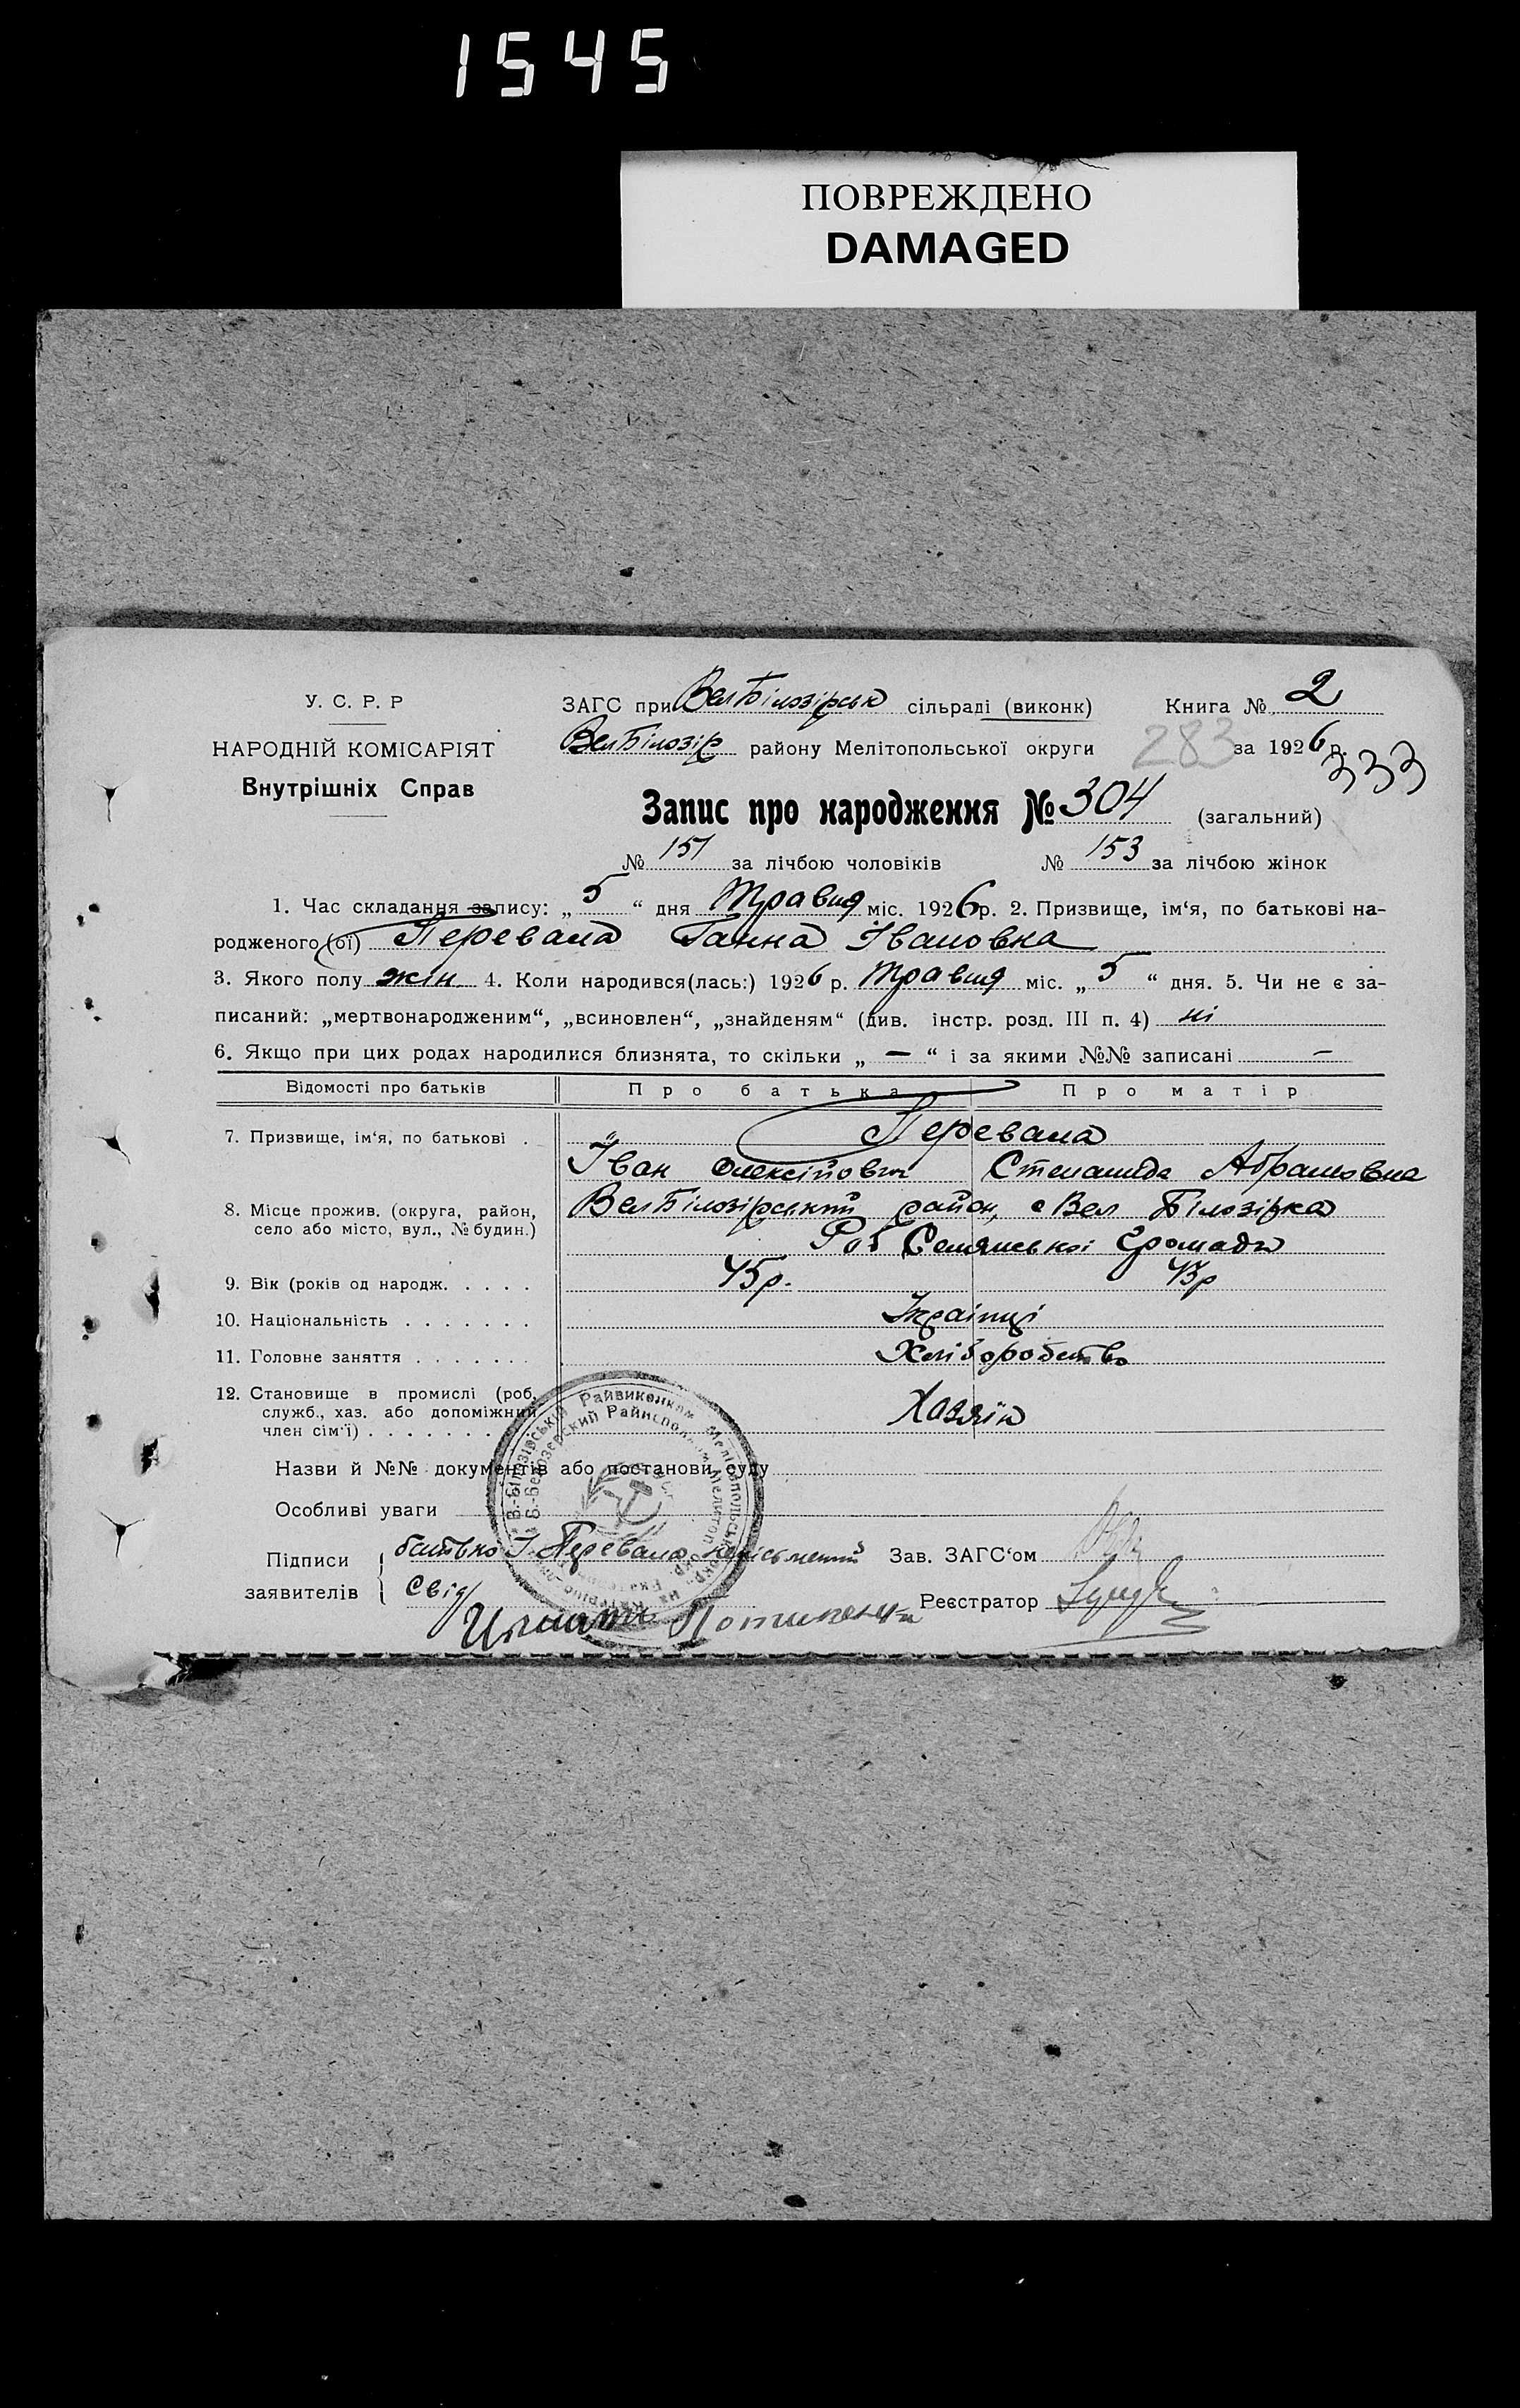 1545
ПОВРЕЖДЕНО
DAMAGED
У. С. Р. Р
НАРОДНІЙ КОМІСАРІЯТ
Внутрішніх Справ
ЗАГС при ВелБілозірськ сільраді (виконк) Книга № 2
ВелБілозір району Мелітопольської округи 283 за 1926 р.
333
Запис про народження № 304 (загальний)
№ 151 за лічбою чоловіків № 153 за лічбою жінок
1. Час складання запису: „ 5 “ дня Травня міс. 1926 р. 2. Призвище, ім‘я, по батькові на-
родженого (ої) Перевала Ганна Івановна
3. Якого полу жін 4. Коли народився(лась:) 1926 р. Травня міс. „ 5 “ дня. 5. Чи не є за-
писаний: „мертвонародженим“, „всиновлен“, „знайденям“ (див. інстр. розд. III п. 4) ні
6. Якщо при цих родах народилися близнята, то скільки „ — “ і за якими №№ записані —
Відомості про батьків Про батька Про матір
7. Призвище, ім‘я, по батькові . Перевала
Іван Олексійович Степанида Абрамовна
8. Місце прожив. (округа, район, ВелБілозірський район, с Вел Білозірка
село або місто, вул., № будин.)
Селянської Громади
9. Вік (років од народж. . . . . 45р. 43р
10. Національність . . . . . . . Українці
11. Головне заняття . . . . . . . Хліборобство
12. Становище в промислі (роб,
служб., хаз. або допоміжний
член сім‘ї) . . . . . . . Хазяїн
Назви й №№ документів або постанови суду
Особливі уваги
Підписи батько І Перевала неписьменний Зав. ЗАГС‘ом
заявителів Свід Реєстратор
В.-Білозірський Райвиконком Мелітопольської окр. на
В.-Белозерский Райисполком Мелитоп. окр.